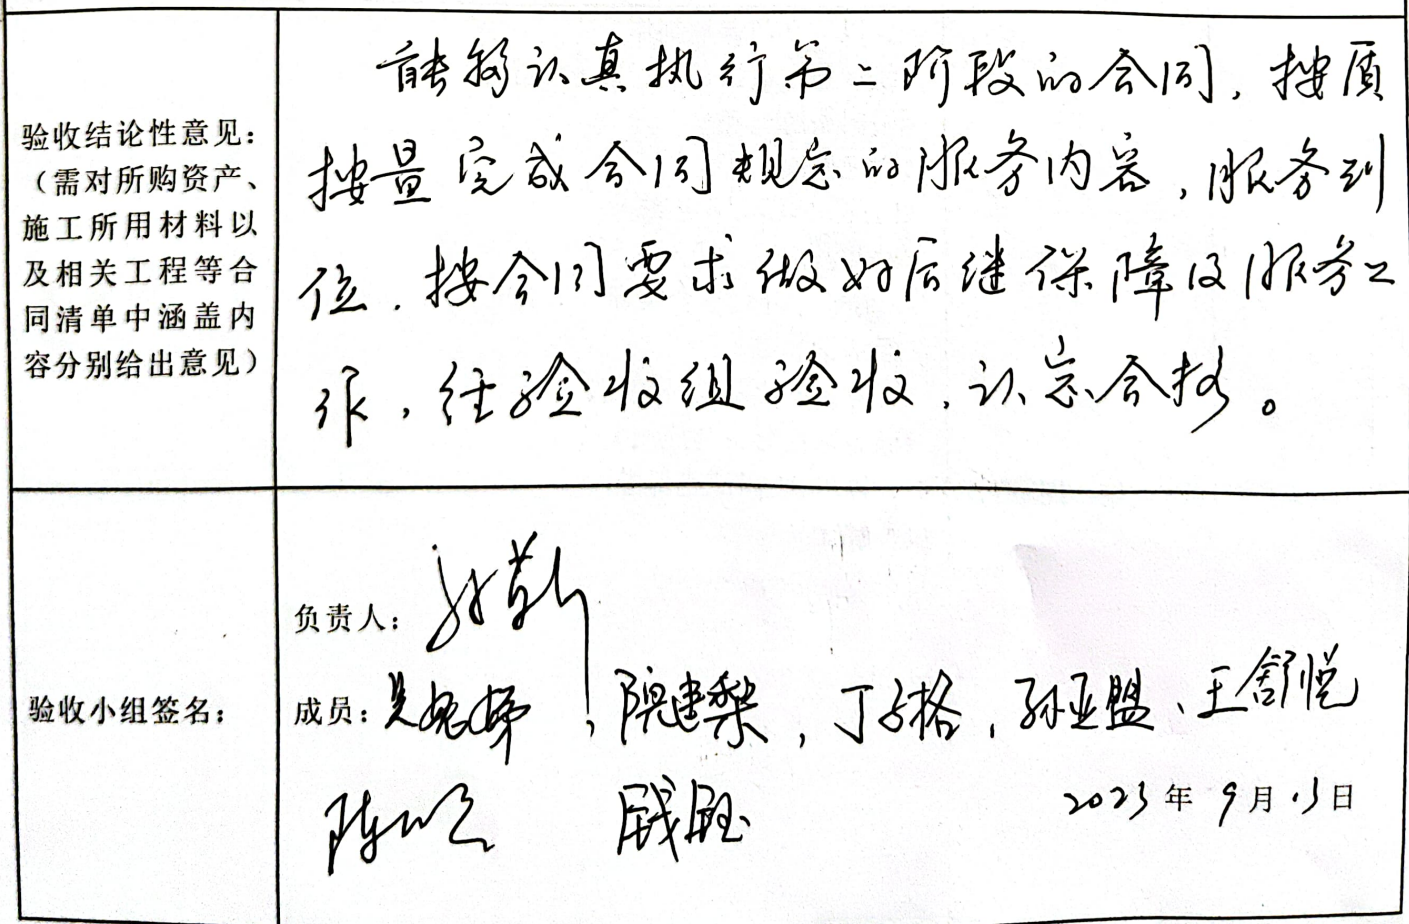 验收结论性意见：
（需对所购资产、
施工所用材料以
及相关工程等合
同清单中涵盖内
容分别给出意见）
能够认真执行第二阶段的合同，按质
按量完成合同规定的服务内容，服务到
位，按合同要求做好后继保障及服务工
作，经验收组验收，认定合格。
验收小组签名：
负责人：
成员： 丁子格，孙亚盟、王舒悦
2023年9月13日